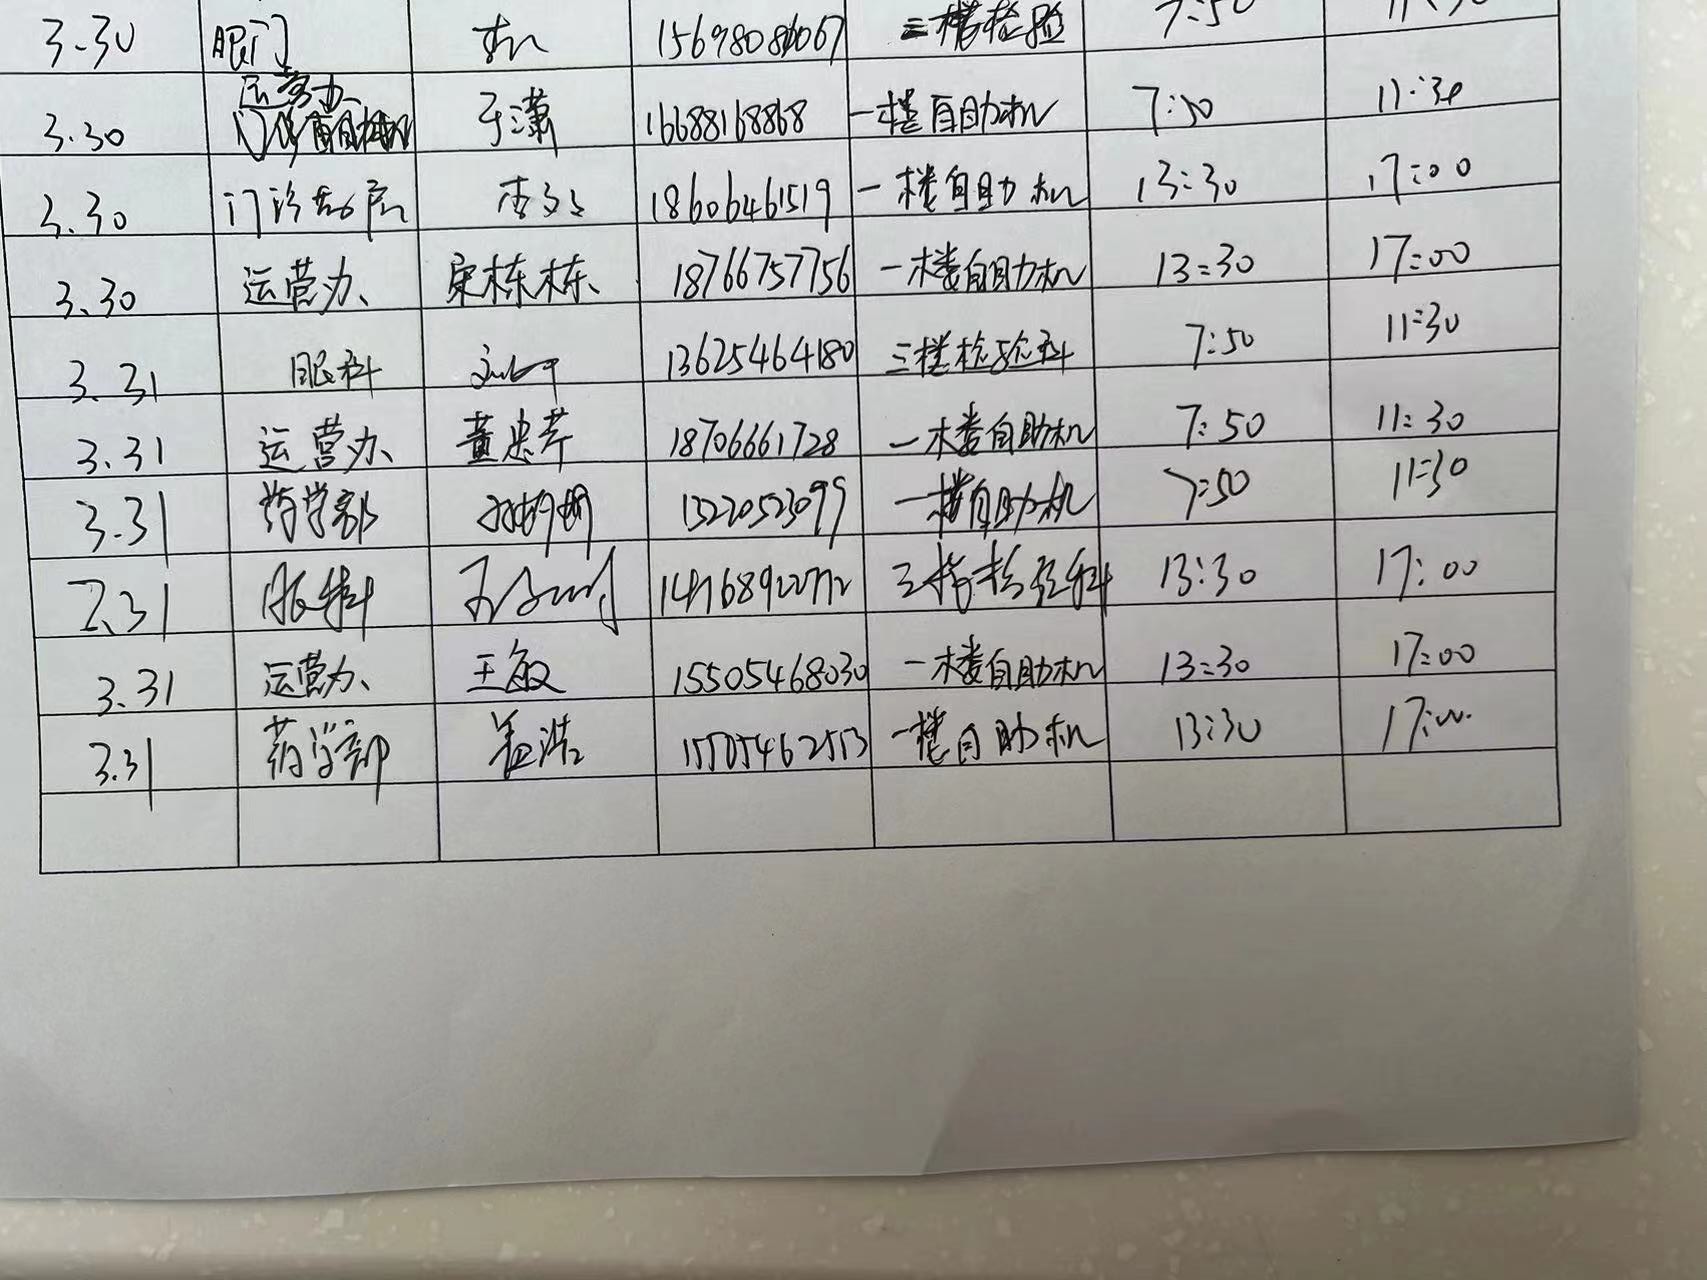 3.30 眼门 15698086067 三楼检验 7:50 11:30
运营办
3.30 于潇 16688168868 一楼自助机 7:50 11:30
3.30 门诊药房 李文 18606461519 一楼自助机 13:30 17:00
3.30 运营办 宋栋栋 18766757756 一楼自助机 13:30 17:00
3.31 眼科 13625464180 三楼检验科 7:50 11:30
3.31 运营办 黄忠芹 18706661728 一楼自助机 7:50 11:30
3.31 药学部 13220523099 一楼自助机 7:50 11:30
3.31 眼科 三楼检验科 13:30 17:00
3.31 运营办 王敏 15505468030 一楼自助机 13:30 17:00
3.31 药学部 盖浩 15505462553 一楼自助机 13:30 17:00